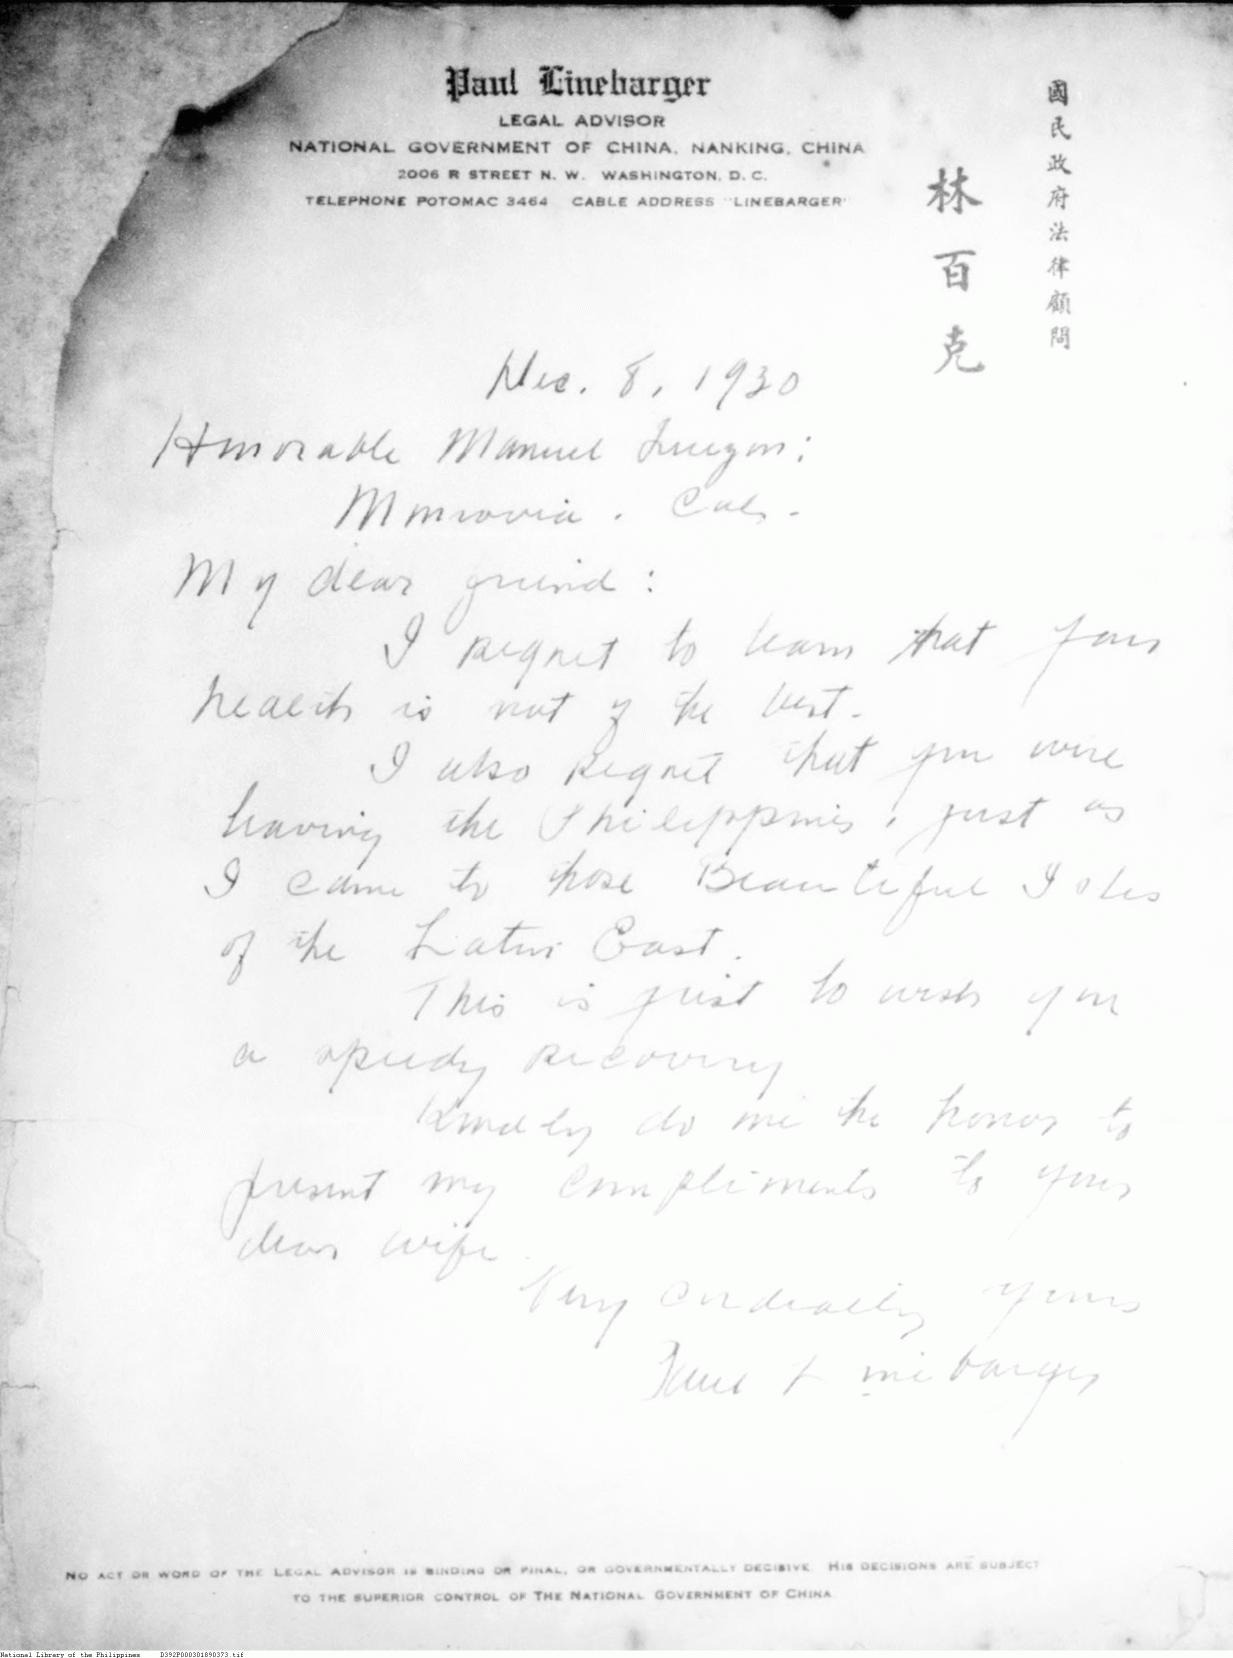 Paul Linebarger
LEGAL ADVISOR
NATIONAL GOVERNMENT OF CHINA, NANKING, CHINA
2006 R STREET N. W. WASHINGTON, D. C.
TELEPHONE POTOMAC 3464 CABLE ADDRESS "LINEBARGER"
國民政府法律顧問
林百克
Dec. 8, 1930
Honorable Manuel Quezon:
Monrovia. Cal.
My dear friend:
I regret to learn that your
health is not of the best.
I also regret that you were
leaving the Philippines, just as
I came to those Beautiful Isles
of the Latin East.
This is just to wish you
a speedy recovery
Kindly do me the honor to
present my compliments to your
dear wife.
Very cordially yours
Paul Linebarger
NO ACT OR WORD OF THE LEGAL ADVISOR IS BINDING OR FINAL, OR GOVERNMENTALLY DECISIVE. HIS DECISIONS ARE SUBJECT
TO THE SUPERIOR CONTROL OF THE NATIONAL GOVERNMENT OF CHINA
National Library of the Philippines D392P000301890373.tif